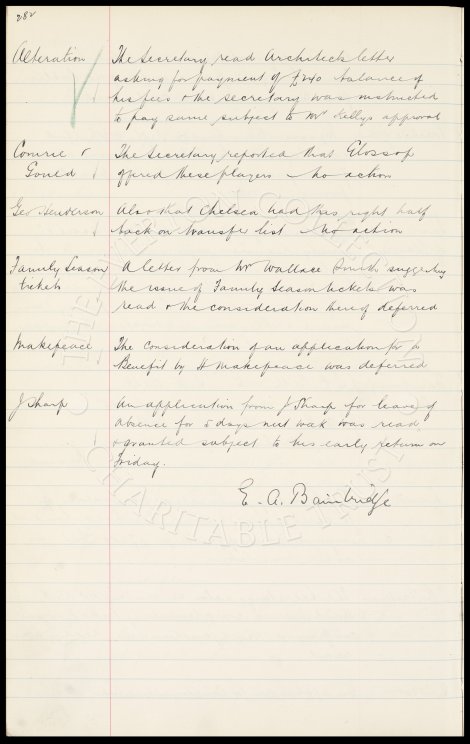 282
Alteration The Secretary read Architects letter
asking for payment of £240 balance of
his fees & the secretary was instructed
to pay same subject to Mr Kellys approval
Comrie & The Secretary reported that Glossop
Gould offered these players — no action
Geo Henderson Also that Chelsea had this right half
back on transfer list — no action
Family Season A letter from Mr Wallace Smith suggesting
tickets the issue of Family Season tickets was
read & the consideration thereof deferred
Makepeace The consideration of an application for a
Benefit by H Makepeace was deferred
J Sharp An application from J Sharp for leave of
absence for 5 days next week was read
& granted subject to his early return on
Friday.
E. A. Bainbridge
CHARITABLE TRUST